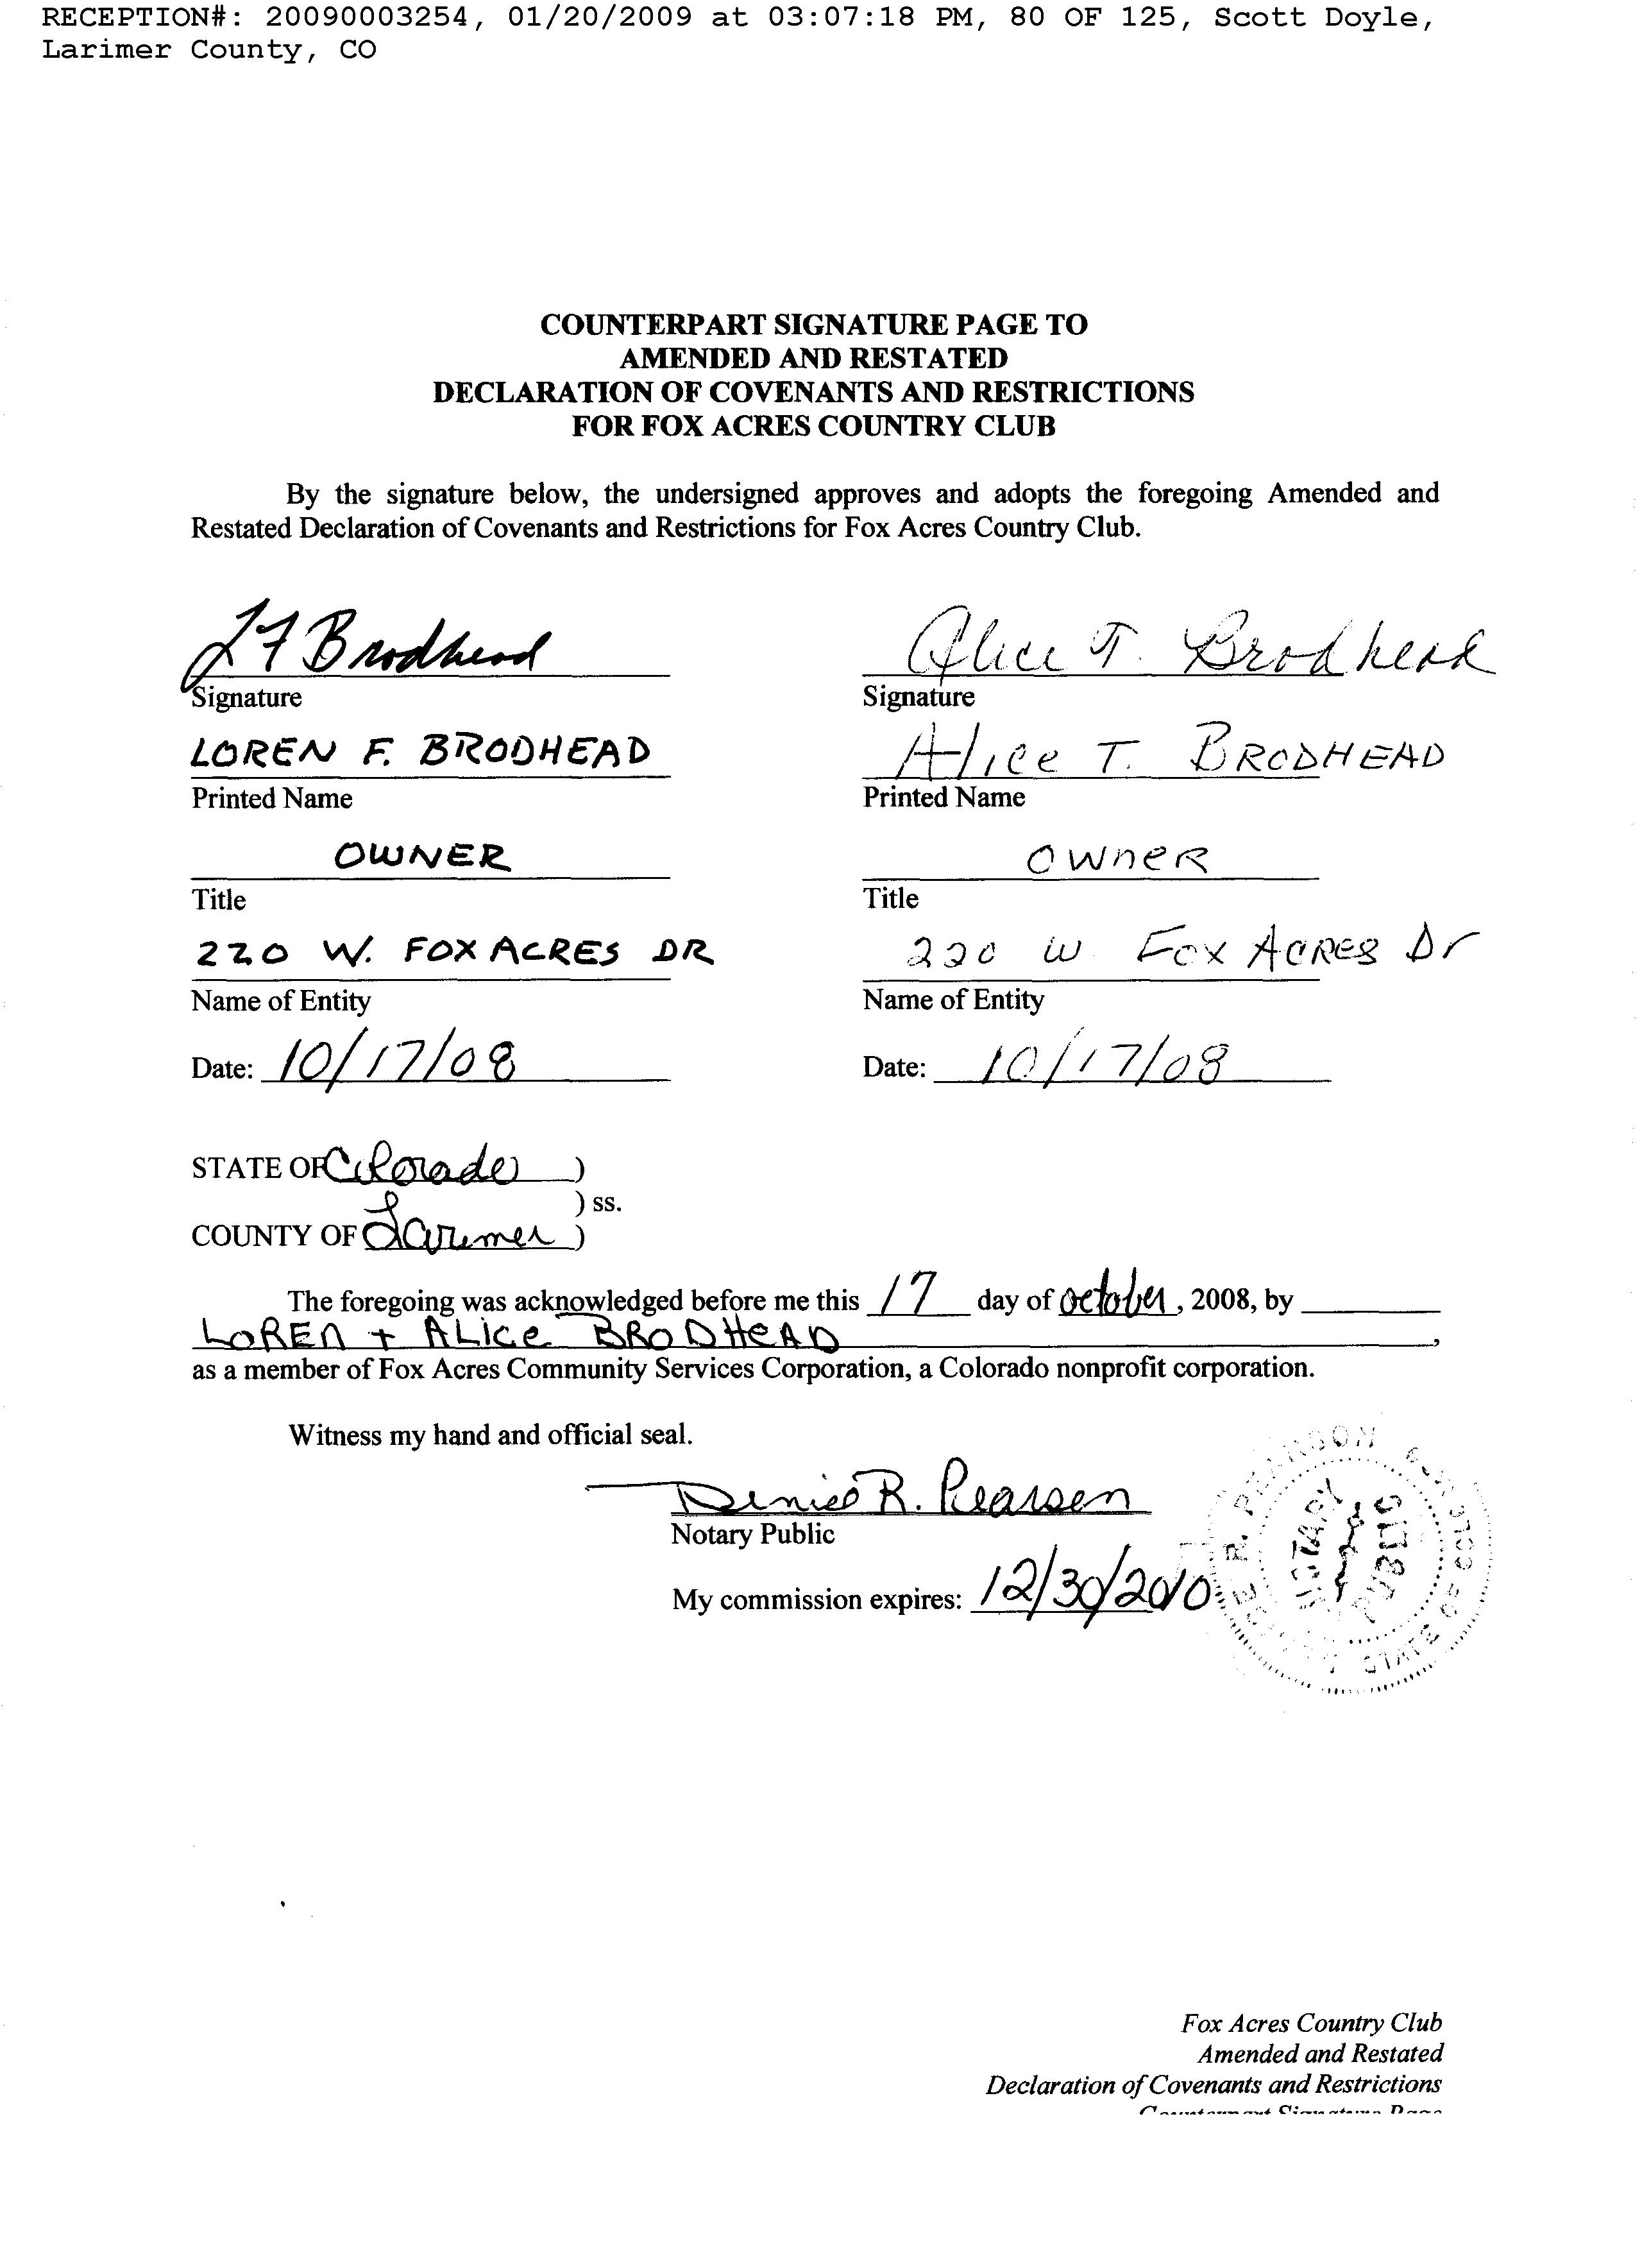 RECEPTION#: 20090003254, 01/20/2009 at 03:07:18 PM, 80 OF 125, Scott Doyle,
Larimer County, CO
COUNTERPART SIGNATURE PAGE TO
AMENDED AND RESTATED
DECLARATION OF COVENANTS AND RESTRICTIONS
FOR FOX ACRES COUNTRY CLUB
By the signature below, the undersigned approves and adopts the foregoing Amended and
Restated Declaration of Covenants and Restrictions for Fox Acres Country Club.
LF Brodhead Alice T. Brodhead
Signature Signature
LOREN F. BRODHEAD Alice T. BRODHEAD
Printed Name Printed Name
OWNER OwneR
Title Title
220 W. FOX ACRES DR 220 W Fox Acres Dr
Name of Entity Name of Entity
Date: 10/17/08 Date: 10/17/08
STATE OF Colorado )
) ss.
COUNTY OF Larimer )
The foregoing was acknowledged before me this 17 day of October, 2008, by
LOREn + ALice BRODHeAD ,
as a member of Fox Acres Community Services Corporation, a Colorado nonprofit corporation.
Witness my hand and official seal.
Denise R. Pearson
Notary Public
My commission expires: 12/30/2010
R. PEARSON
NOTARY
PUBLIC
STATE OF COLO
Fox Acres Country Club
Amended and Restated
Declaration of Covenants and Restrictions
Counterpart Signature Page